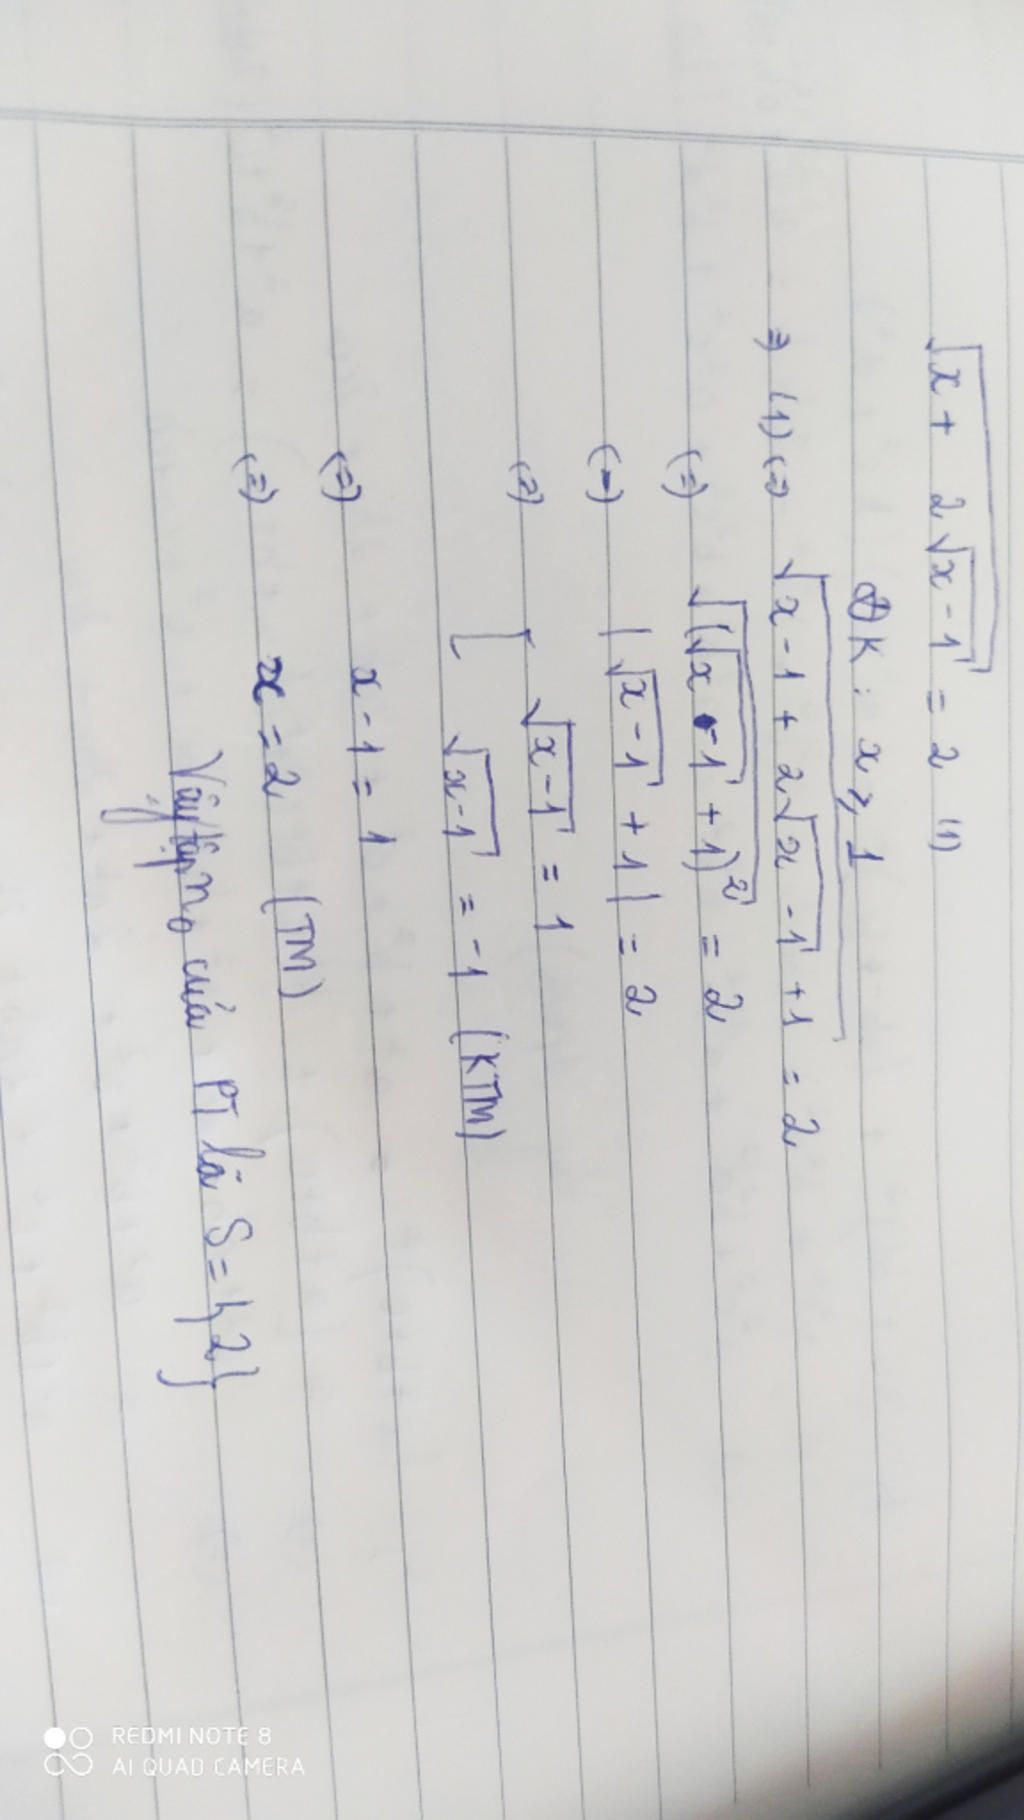 √(x + 2√(x-1)) = 2 (1)
ĐK: x ≥ 1
=> (1) (=) √(x-1 + 2√(x-1) +1) = 2
(=) √((√(x-1) +1)²) = 2
(=) |√(x-1) + 1| = 2
(=) [ √(x-1) = 1
√(x-1) = -1 (KTM)
(=) x-1 = 1
(=) x = 2 (TM)
Vậy tập n₀ của PT là S = {2}
REDMI NOTE 8
AI QUAD CAMERA